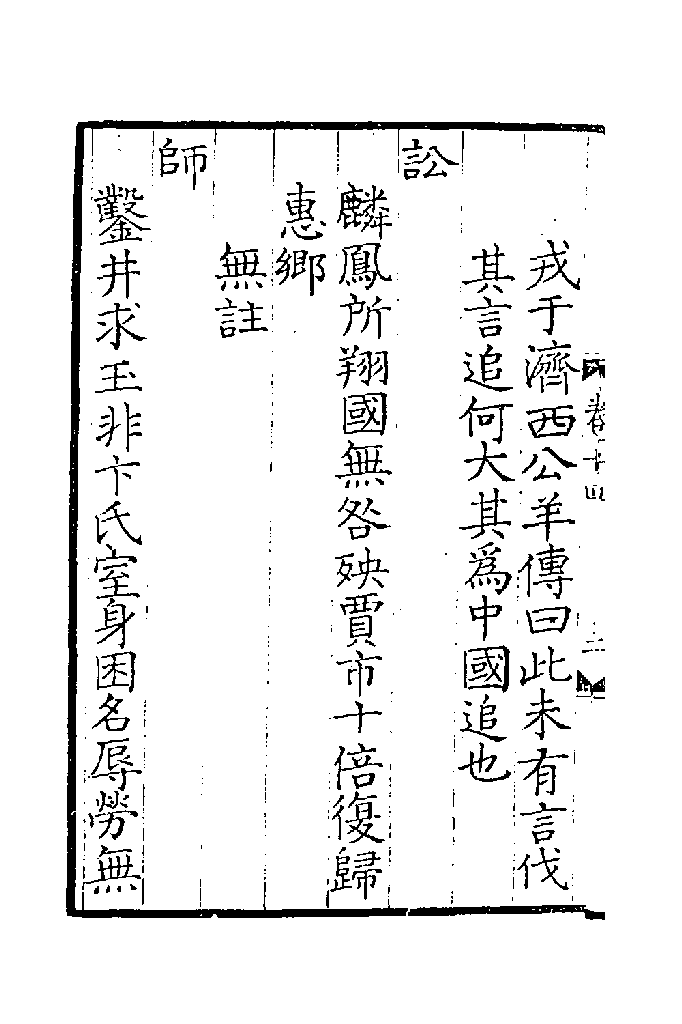 卷十四
二
戎于濟西公羊傳曰此未有言伐
其言追何大其為中國追也
訟
麟鳳所翔國無咎殃賈市十倍復歸
惠鄉
無註
師
鑿井求玉非卞氏室身困名辱勞無